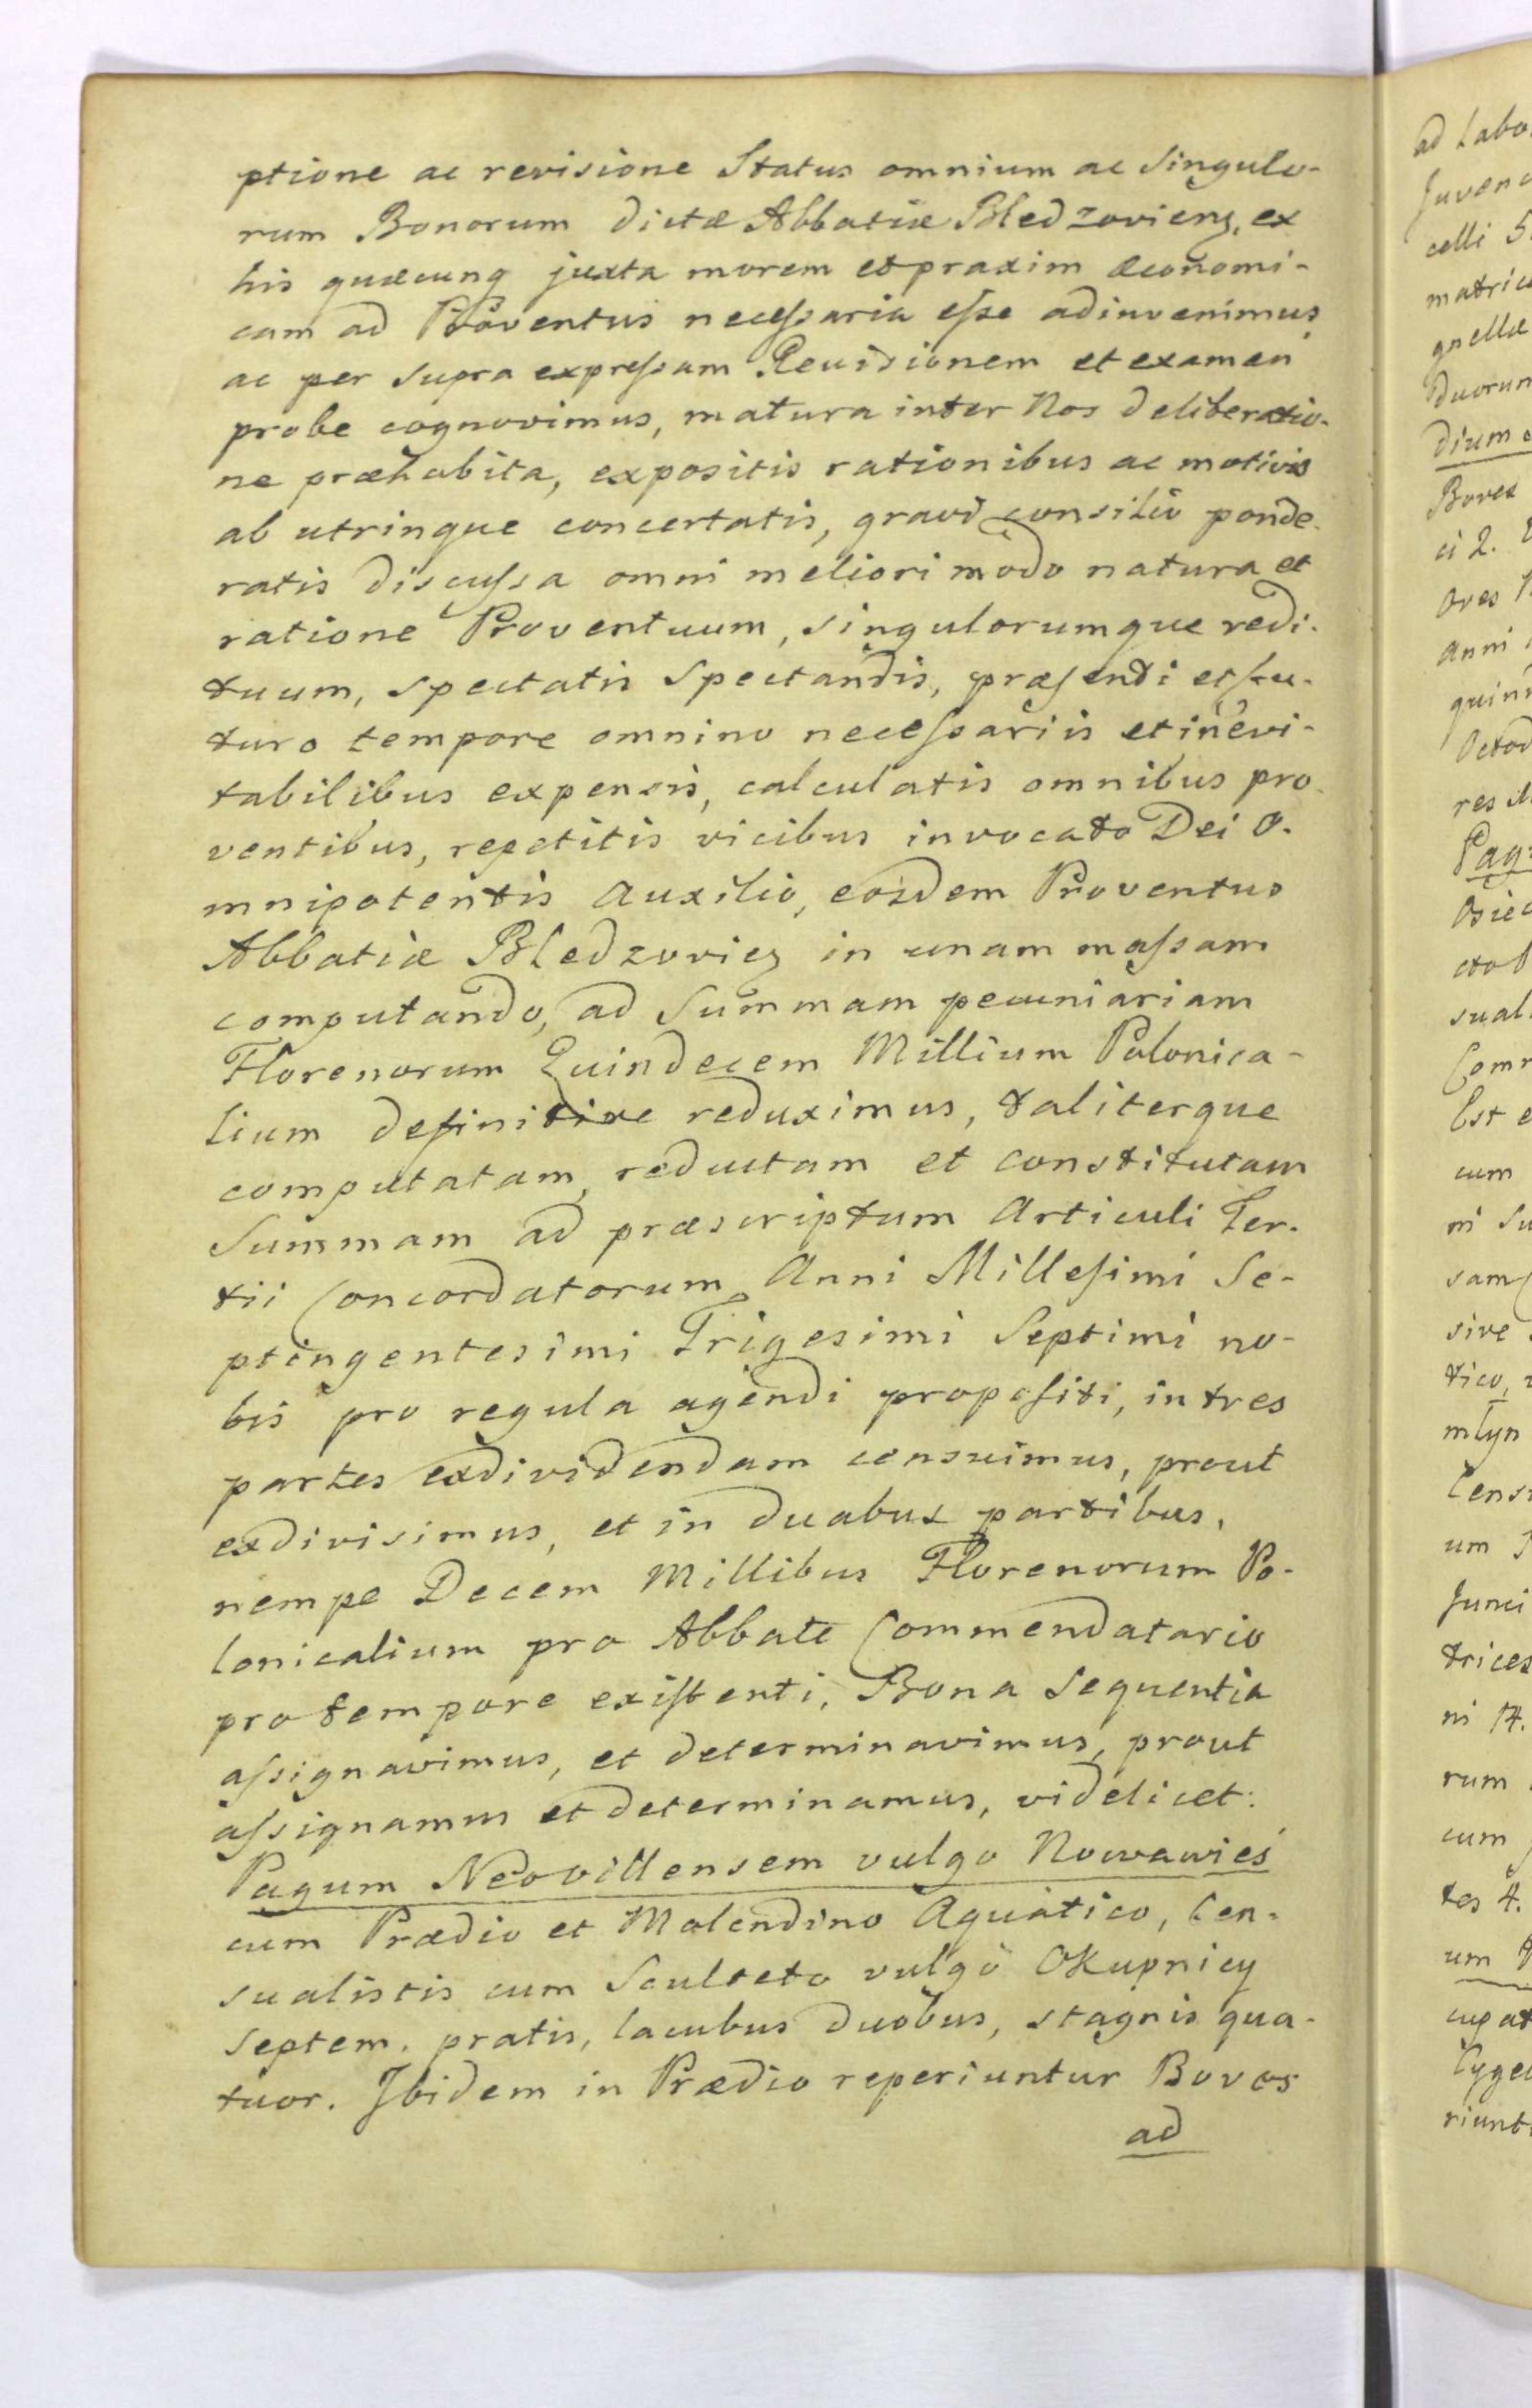 ptione ac revisione Status omnium ac Singulo-
rum Bonorum dictæ Abbatiæ Bledzoviens, ex
his quæcunq juxta morem et praxim œconomi-
cam ad Proventus necessaria esse adinvenimus
ac per supra expressam Revisionem et examen
probe cognovimus, matura inter Nos deliberatio-
ne præhabita, expositis rationibus ac motivis
ab utrinque concertatis, gravi consilio ponde-
ratis discussa omni meliori modo natura et
ratione Proventuum, singulorumque redi-
tuum, spectatis Spectandis, præsenti et fu-
turo tempore omnino necessariis et inevi-
tabilibus expensis, calculatis omnibus pro-
ventibus, repetitis vicibus invocato Dei O-
mnipotentis Auxilio, eosdem Proventus
Abbatiæ Bledzovies in unam massam
computando, ad Summam pecuniariam
Florenorum Quindecem Millium Polonica-
lium definitive reduximus, taliterque
computatam, reductam et constitutam
Summam ad præscriptum Articuli Ter-
tii Concordatorum Anni Millesimi Se-
ptingentesimi Trigesimi Septimi no-
bis pro regula agendi propositi, in tres
partes exdividendam censuimus, prout
exdivisimus, et in duabus partibus,
nempe Decem Millibus Florenorum Po-
lonicalium pro Abbate Commendatario
pro tempore existenti, Bona Sequentia
assignavimus, et determinavimus, prout
assignamus et determinamus, videlicet:
Pagum Neovillensem vulgo Nowawieś
cum Prædio et Molendino Aquatico, Cen-
sualistis cum Sculteto vulgo Okupnicy
septem, pratis, lacubus duobus, stagnis qua-
tuor. Ibidem in Prædio reperiuntur Boves
ad
ad Labo
Juvenc
celli 5
matric
gnellæ
duorum
dium
Boves
ci 2.
Oves
anni
quin
Octod
res
Pag
Osie
sual
Com
Est e
cum
ni Su
sam
sive
tico,
młyn
Cens
um
Junci
trices
ni 14.
rum
cum
tes 4.
um
cupat
Cyge
riunt